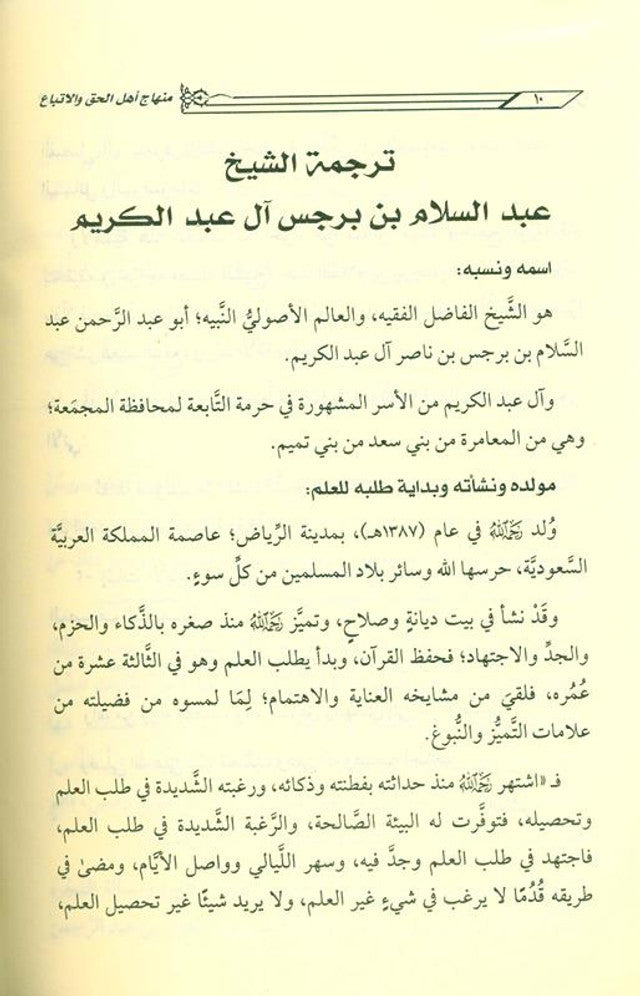 ١٠ منهاج أهل الحق والاتباع
ترجمة الشيخ
عبد السلام بن برجس آل عبد الكريم
اسمه ونسبه:
هو الشَّيخ الفاضل الفقيه، والعالم الأصوليُّ النَّبيه؛ أبو عبد الرَّحمن عبد
السَّلام بن برجس بن ناصر آل عبد الكريم.
وآل عبد الكريم من الأسر المشهورة في حرمة التَّابعة لمحافظة المجمَعة؛
وهي من المعامرة من بني سعد من بني تميم.
مولده ونشأته وبداية طلبه للعلم:
وُلد رَحِمَهُ اللَّهُ في عام (١٣٨٧هـ)، بمدينة الرِّياض؛ عاصمة المملكة العربيَّة
السَّعوديَّة، حرسها الله وسائر بلاد المسلمين من كلِّ سوءٍ.
وقَدْ نشأ في بيت ديانةٍ وصلاحٍ، وتميَّز رَحِمَهُ اللَّهُ منذ صغره بالذَّكاء والحزم،
والجدِّ والاجتهاد؛ فحفظ القرآن، وبدأ يطلب العلم وهو في الثَّالثة عشرة من
عُمُره، فلقيَ من مشايخه العناية والاهتمام؛ لِمَا لمسوه من فضيلته من
علامات التَّميُّز والنُّبوغ.
فـ «اشتهر رَحِمَهُ اللَّهُ منذ حداثته بفطنته وذكائه، ورغبته الشَّديدة في طلب العلم
وتحصيله، فتوفَّرت له البيئة الصَّالحة، والرَّغبة الشَّديدة في طلب العلم،
فاجتهد في طلب العلم وجدَّ فيه، وسهر اللَّيالي وواصل الأيَّام، ومضىٰ في
طريقه قُدُمًا لا يرغب في شيءٍ غير العلم، ولا يريد شيئًا غير تحصيل العلم،